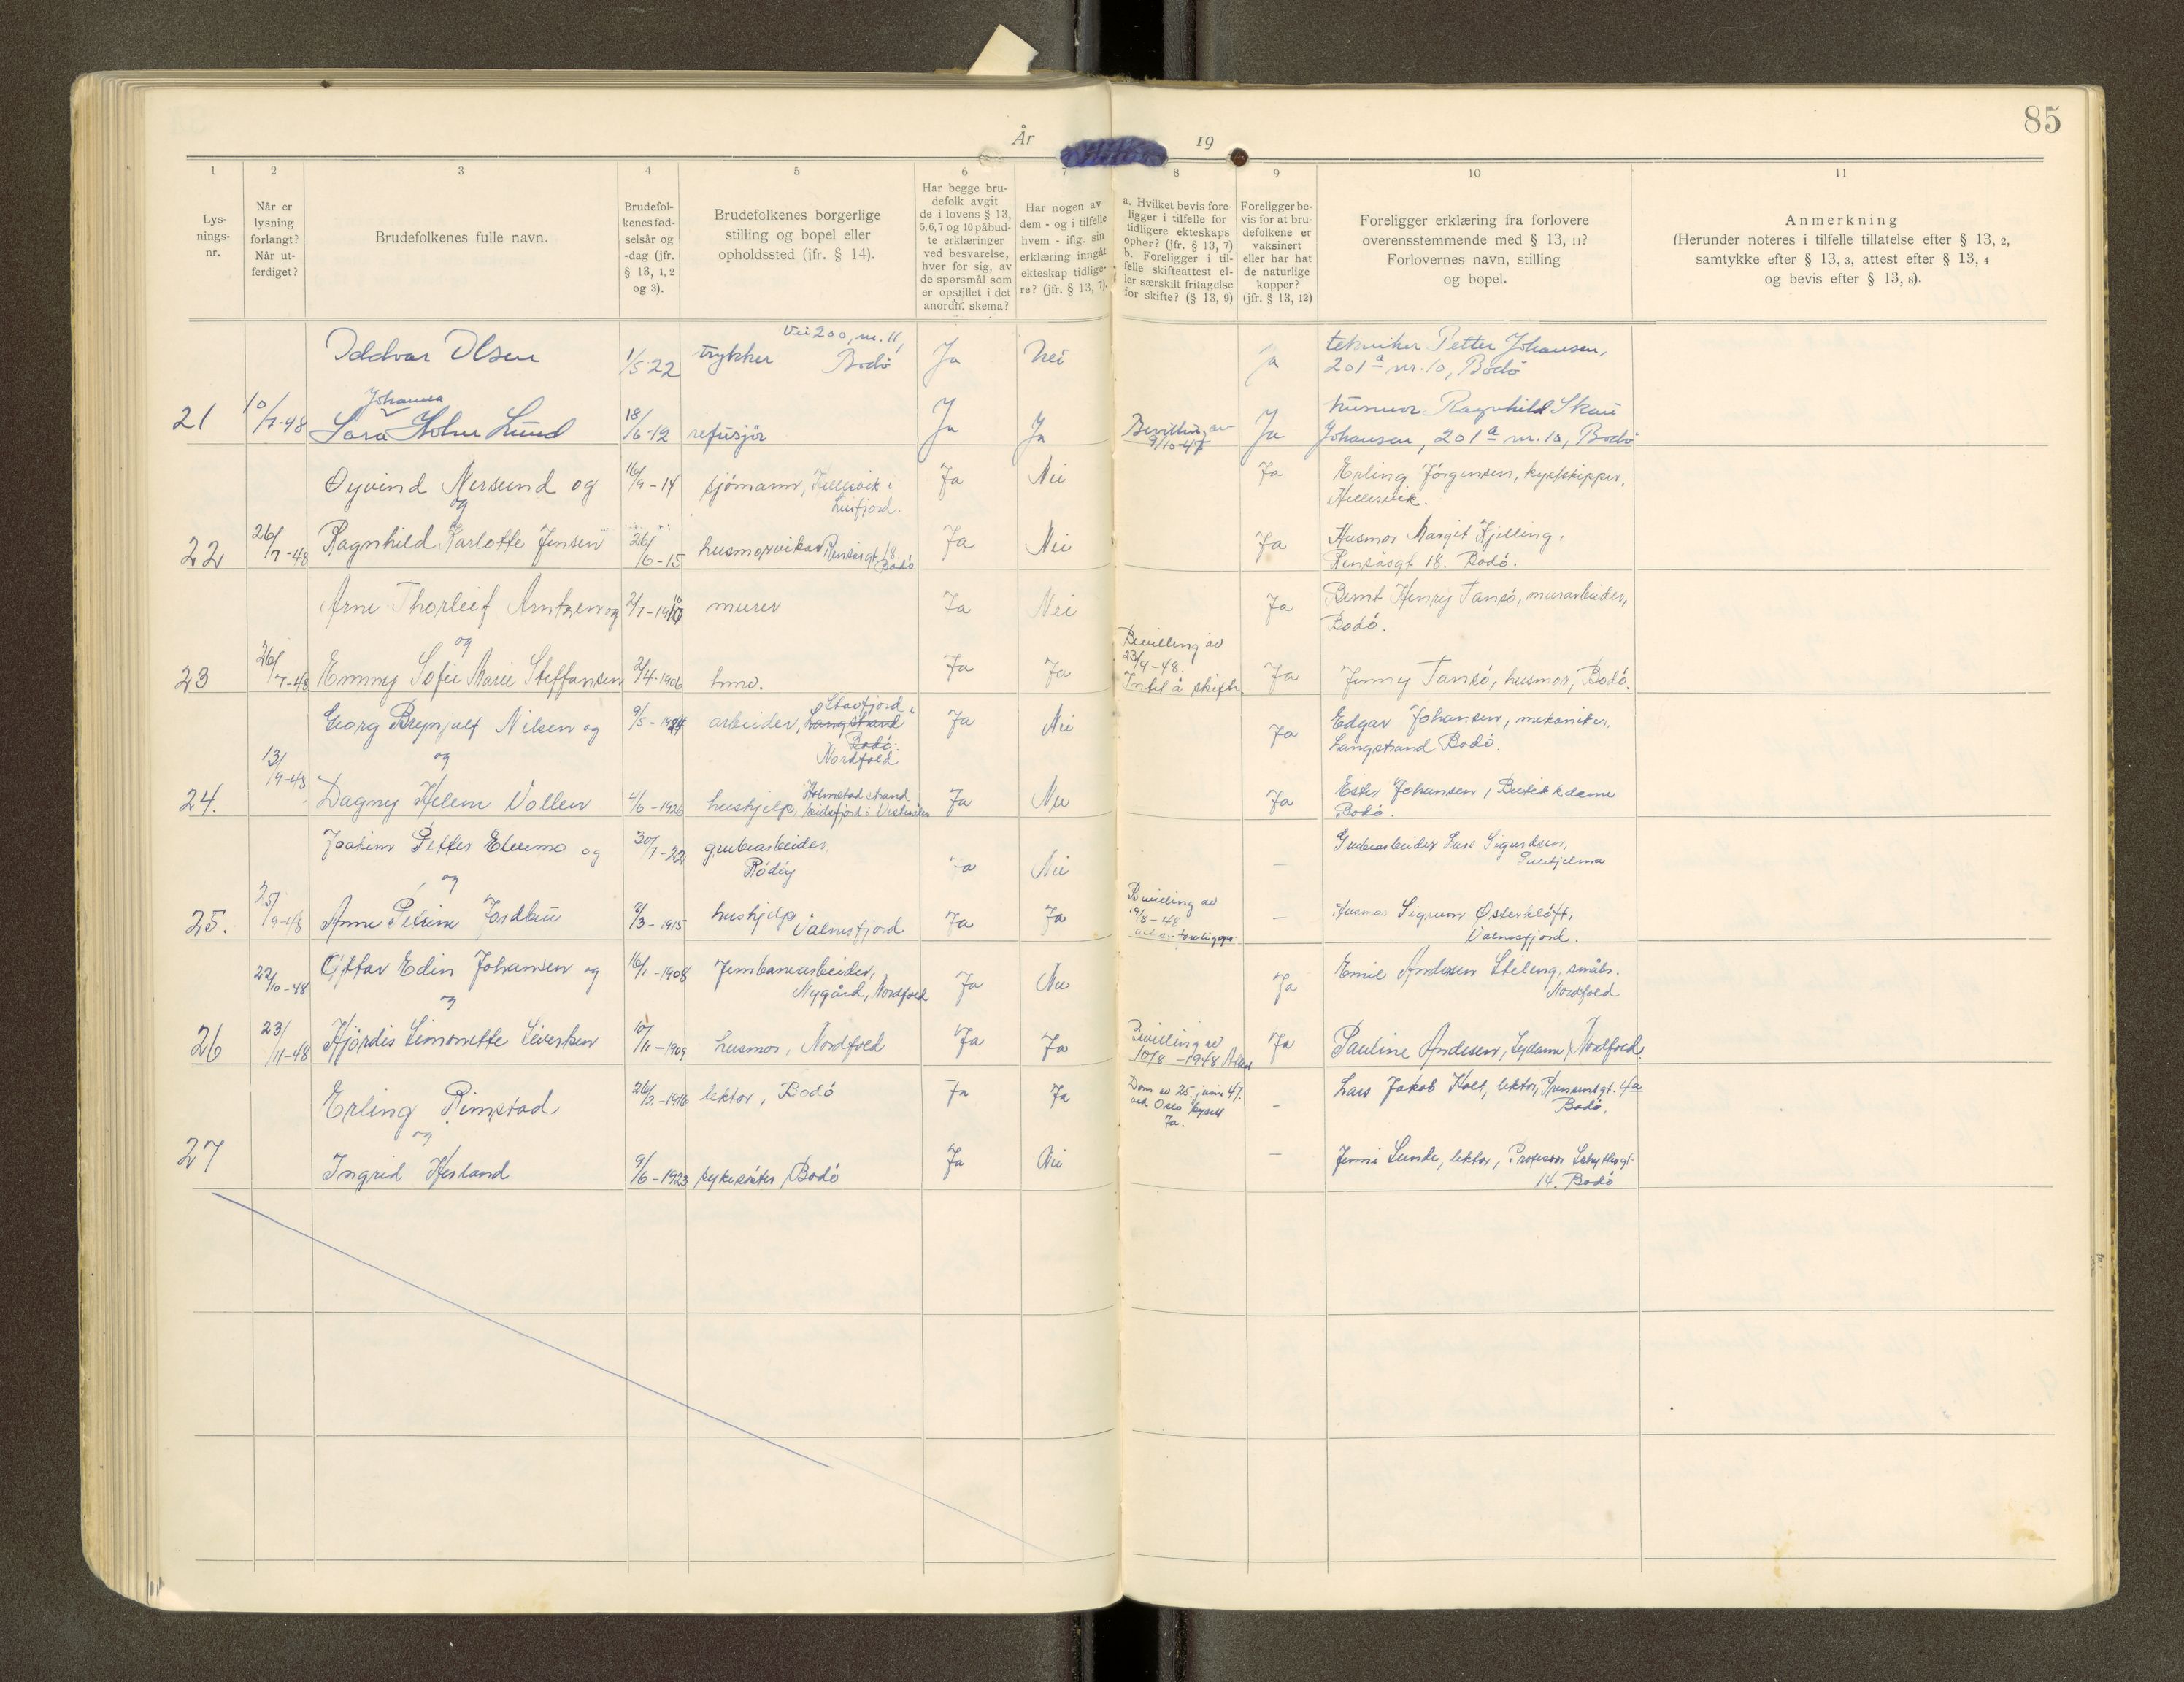 85
År 19
1 2 3 4 5 6 7 8 9 10 11
Lys-
nings-
nr.
Når er
lysning
forlangt?
Når ut-
ferdiget?
Brudefolkenes fulle navn.
Brudefol-
kenes fød-
selsår og
-dag (jfr.
§ 13, 1, 2
og 3).
Brudefolkenes borgerlige
stilling og bopel eller
opholdssted (jfr. § 14).
Har begge bru-
defolk avgit
de i lovens § 13,
5, 6, 7 og 10 påbud-
te erklæringer
ved besvarelse,
hver for sig, av
de spørsmål som
er opstillet i det
anordn. skema?
Har nogen av
dem - og i tilfelle
hvem - iflg. sin
erklæring inngått
ekteskap tidlige-
re? (jfr. § 13, 7).
a. Hvilket bevis fore-
ligger i tilfelle for
tidligere ekteskaps
ophør? (jfr. § 13, 7)
b. Foreligger i til-
felle skifteattest el-
ler særskilt fritagelse
for skifte? (§ 13, 9)
Foreligger be-
vis for at bru-
defolkene er
vaksinert
eller har hat
de naturlige
kopper?
(jfr. § 13, 12)
Foreligger erklæring fra forlovere
overensstemmende med § 13, 11?
Forlovernes navn, stilling
og bopel.
Anmerkning
(Herunder noteres i tilfelle tillatelse efter § 13, 2,
samtykke efter § 13, 3, attest efter § 13, 4
og bevis efter § 13, 8).
Oddvar Olsen 1/5 22 trykker Vei 200, nr. 11, Bodö Ja Nei Ja tekniker Petter Johansen,
201a nr. 10, Bodö
Johanna
21 10/7-48 Sara Holm Lund 18/6-12 refusjör Ja Ja Bevilling av
9/10-47 Ja husmor Ragnhild Skau
Johansen, 201a nr. 10, Bodö
Øyvind Nersund og 16/9-14 sjömann, Ja Nei Ja Erling Jörgensen, kystskipper,
Hellesvik.
og
22 26/7-48 Ragnhild Karlotte Jensen 26/6-15 husmorvikar Rensåsgt. 18 Bodö Ja Nei Ja Husmor Margit Hjelling,
Rensåsgt 18. Bodö.
Arne Thorleif Arntzen og 2/7-1910 murer Ja Nei Ja Bernt Henry Tansö, murarbeider,
Bodö.
og
23 26/7-48 Emmy Sofie Marie Steffansen 2/4-1906 hmv. Ja Ja Bevilling av
23/4-48.
Intet å skifte. Ja Jenny Tansö, husmor, Bodö.
Georg Brynjulf Nilsen og 9/5-1924 arbeider, Stavfjord i
Langstrand
Bodö.
Nordfold Ja Nei Ja Edgar Johansen, mekaniker.
Langstrand Bodö.
og
24. 13/9-48 Dagny Helene Vollen 4/6-1926 hushjelp, Holmstadstrand
Eidsfjord i Vesterålen Ja Nei Ja Ester Johansen, Butikkdame
Bodö.
Joakim Petter Elvemo og 30/7-22 grubearbeider,
Rödöy Ja Nei - Grubearbeider Lars Sigurdsen,
Sulitjelma
og
25. 25/9-48 Anna Petrine Jordbru 2/3-1915 hushjelp Valnesfjord Ja Ja Bevilling av
19/5-48 - Husmor Sigrunn Østerklöft,
Valnesfjord.
22/10-48 Ottar Edin Johansen og 16/1-1908 Jernbanearbeider,
Nygård, Nordfold Ja Nei Ja Emil Andersen Steleng, småbr.
Nordfold
og
26 23/11-48 Hjördis Simonette Sivertsen 10/11-1909 husmor, Nordfold Ja Ja Bevilling av
10/8-1948 Ja Pauline Andersen, Sydame, Nordfold.
Erling Rimstad, 26/2-1916 lektor, Bodö Ja Ja Dom av 25. juni 47.
ved Oslo byrett
Ja. - Lars Jakob Holt, lektor, Prinsensgt. 4a
Bodö.
og
27 Ingrid Hesland 9/6-1923 sykesöster, Bodö Ja Nei - Jenni Lunde, lektor, Professor Schyttesgt.
14. Bodö